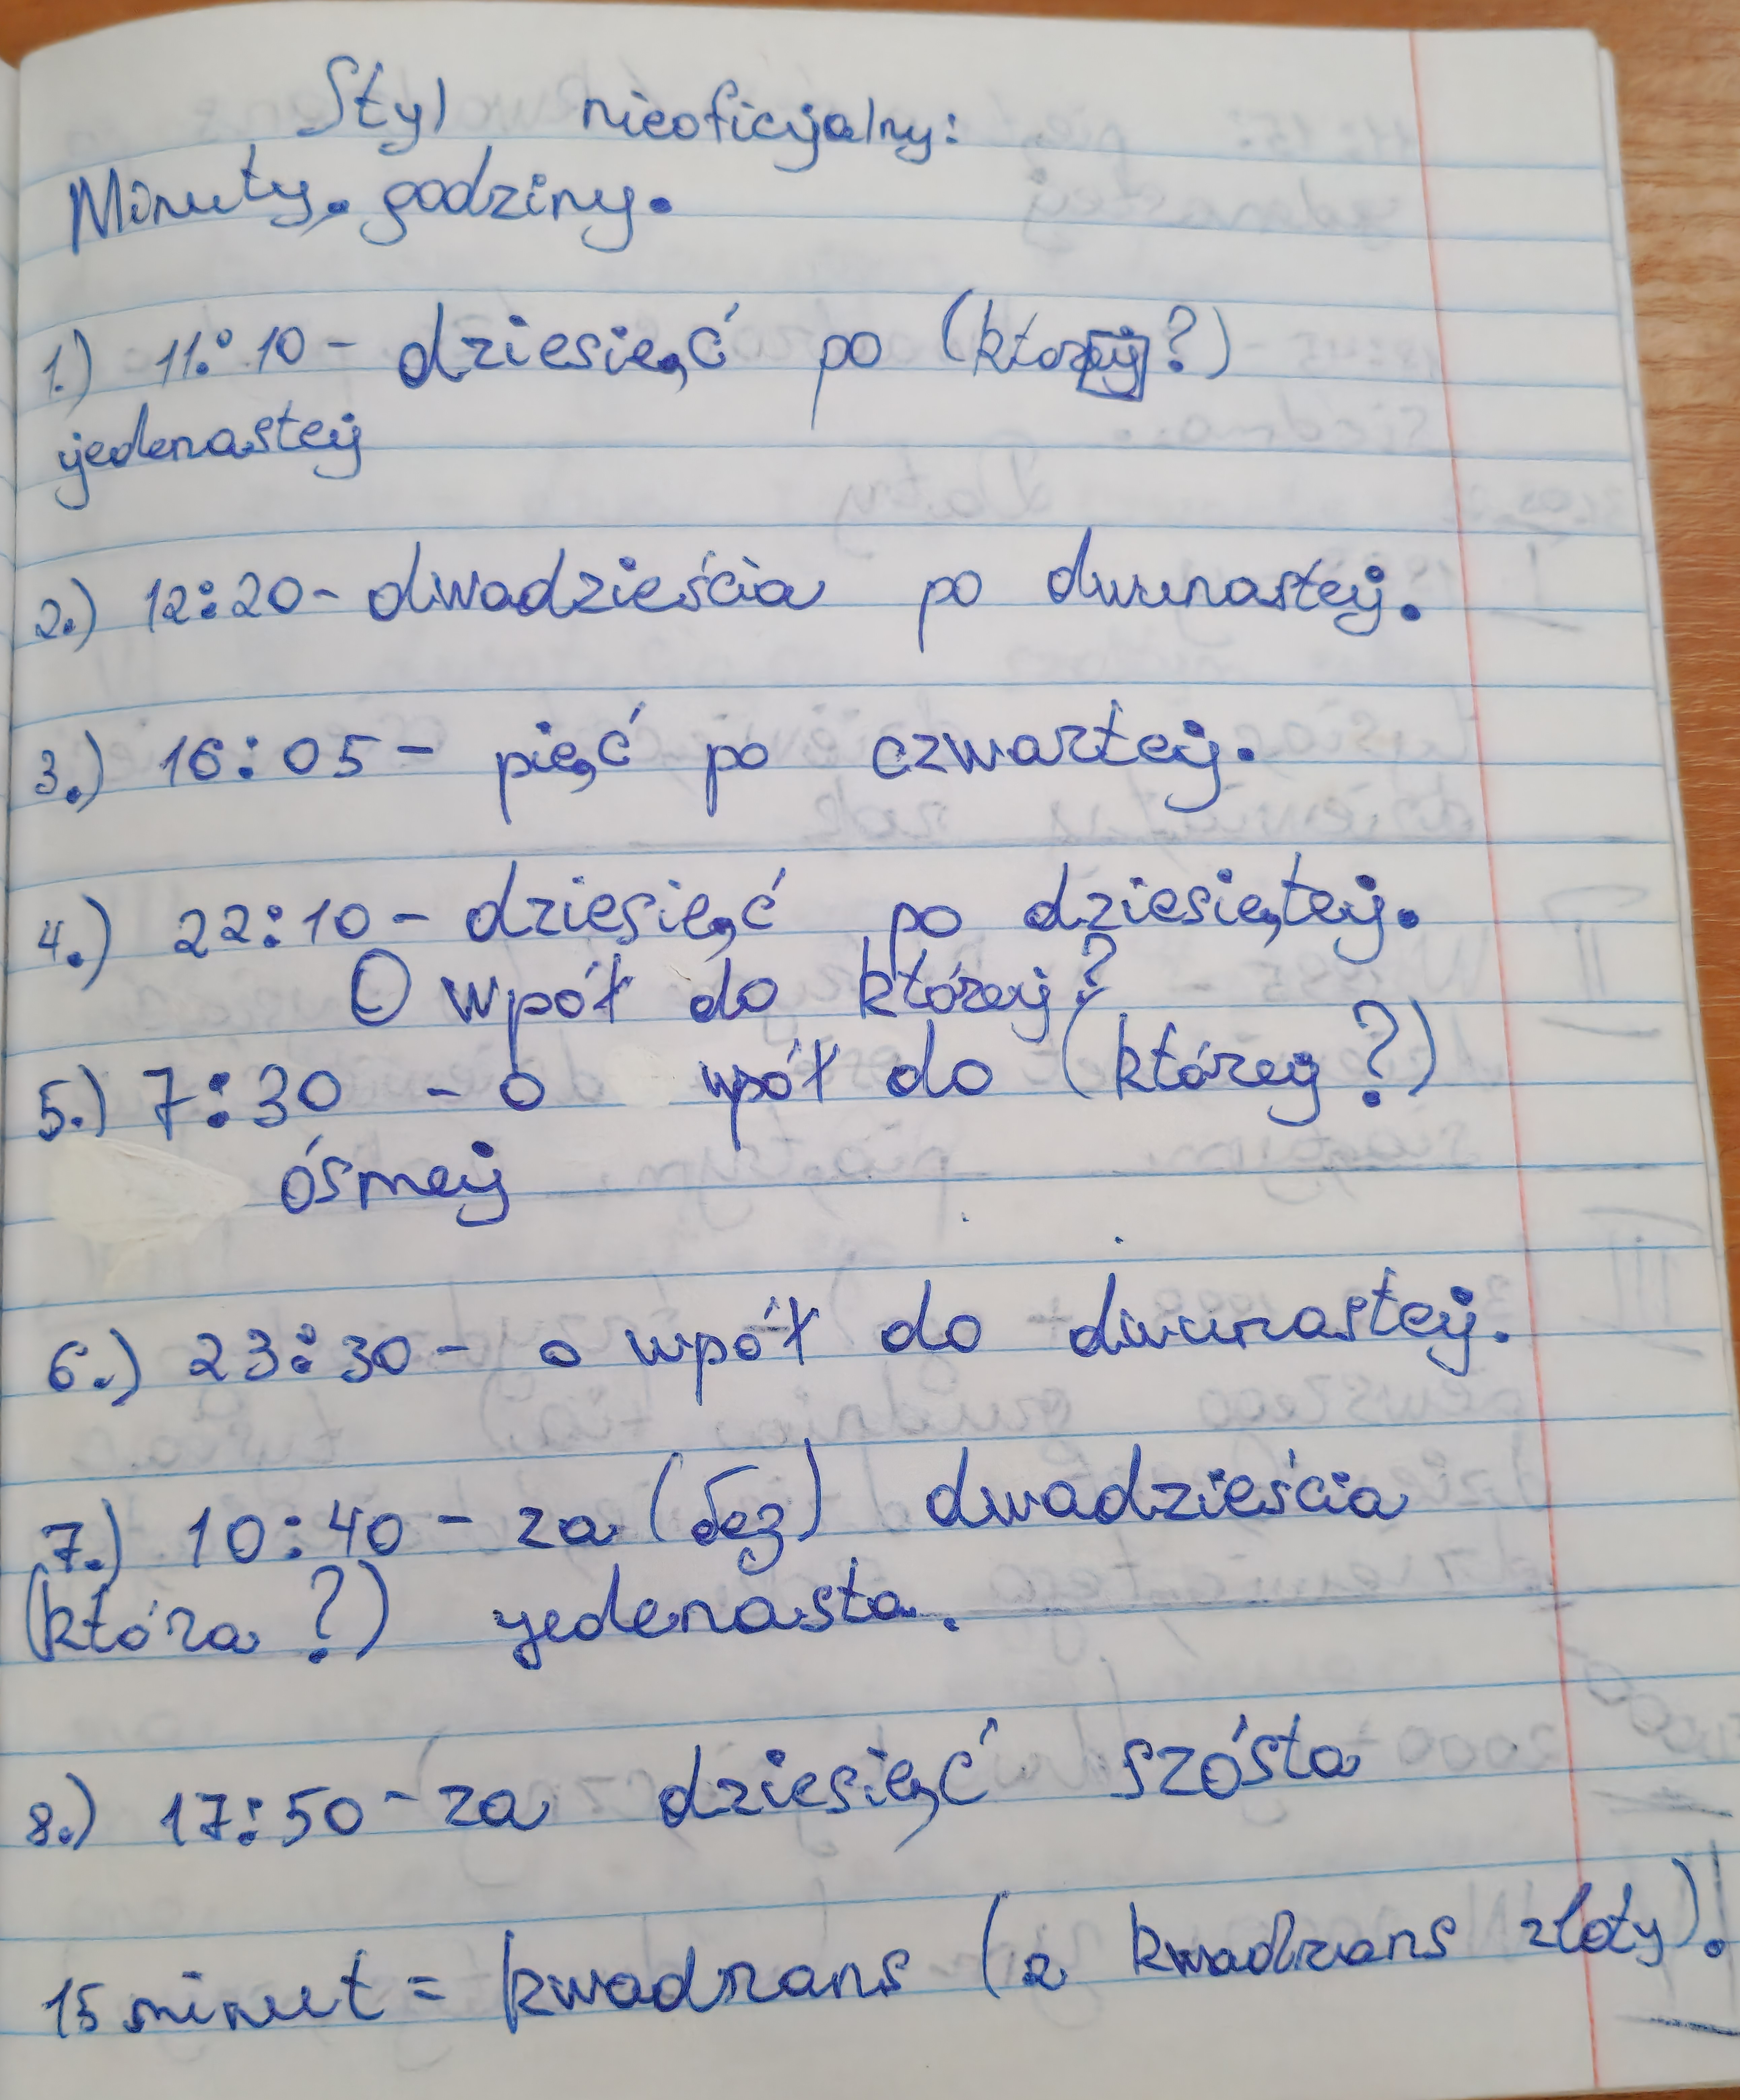 Styl nieoficjalny:
Minuty. godziny.
1.) 11:10 - dziesięć po (której?)
jedenastej
2.) 12:20 - dwadzieścia po dwunastej.
3.) 16:05 - pięć po czwartej.
4.) 22:10 - dziesięć po dziesiętej.
O wpół do której?
5.) 7:30 - o wpół do (której?)
ósmej
6.) 23:30 - o wpół do dwunastej.
7.) 10:40 - za (без) dwadzieścia
(która?) jedenasta.
8.) 17:50 - za dziesięć szósta
15 minut = kwadrans (a kwadrans złoty).